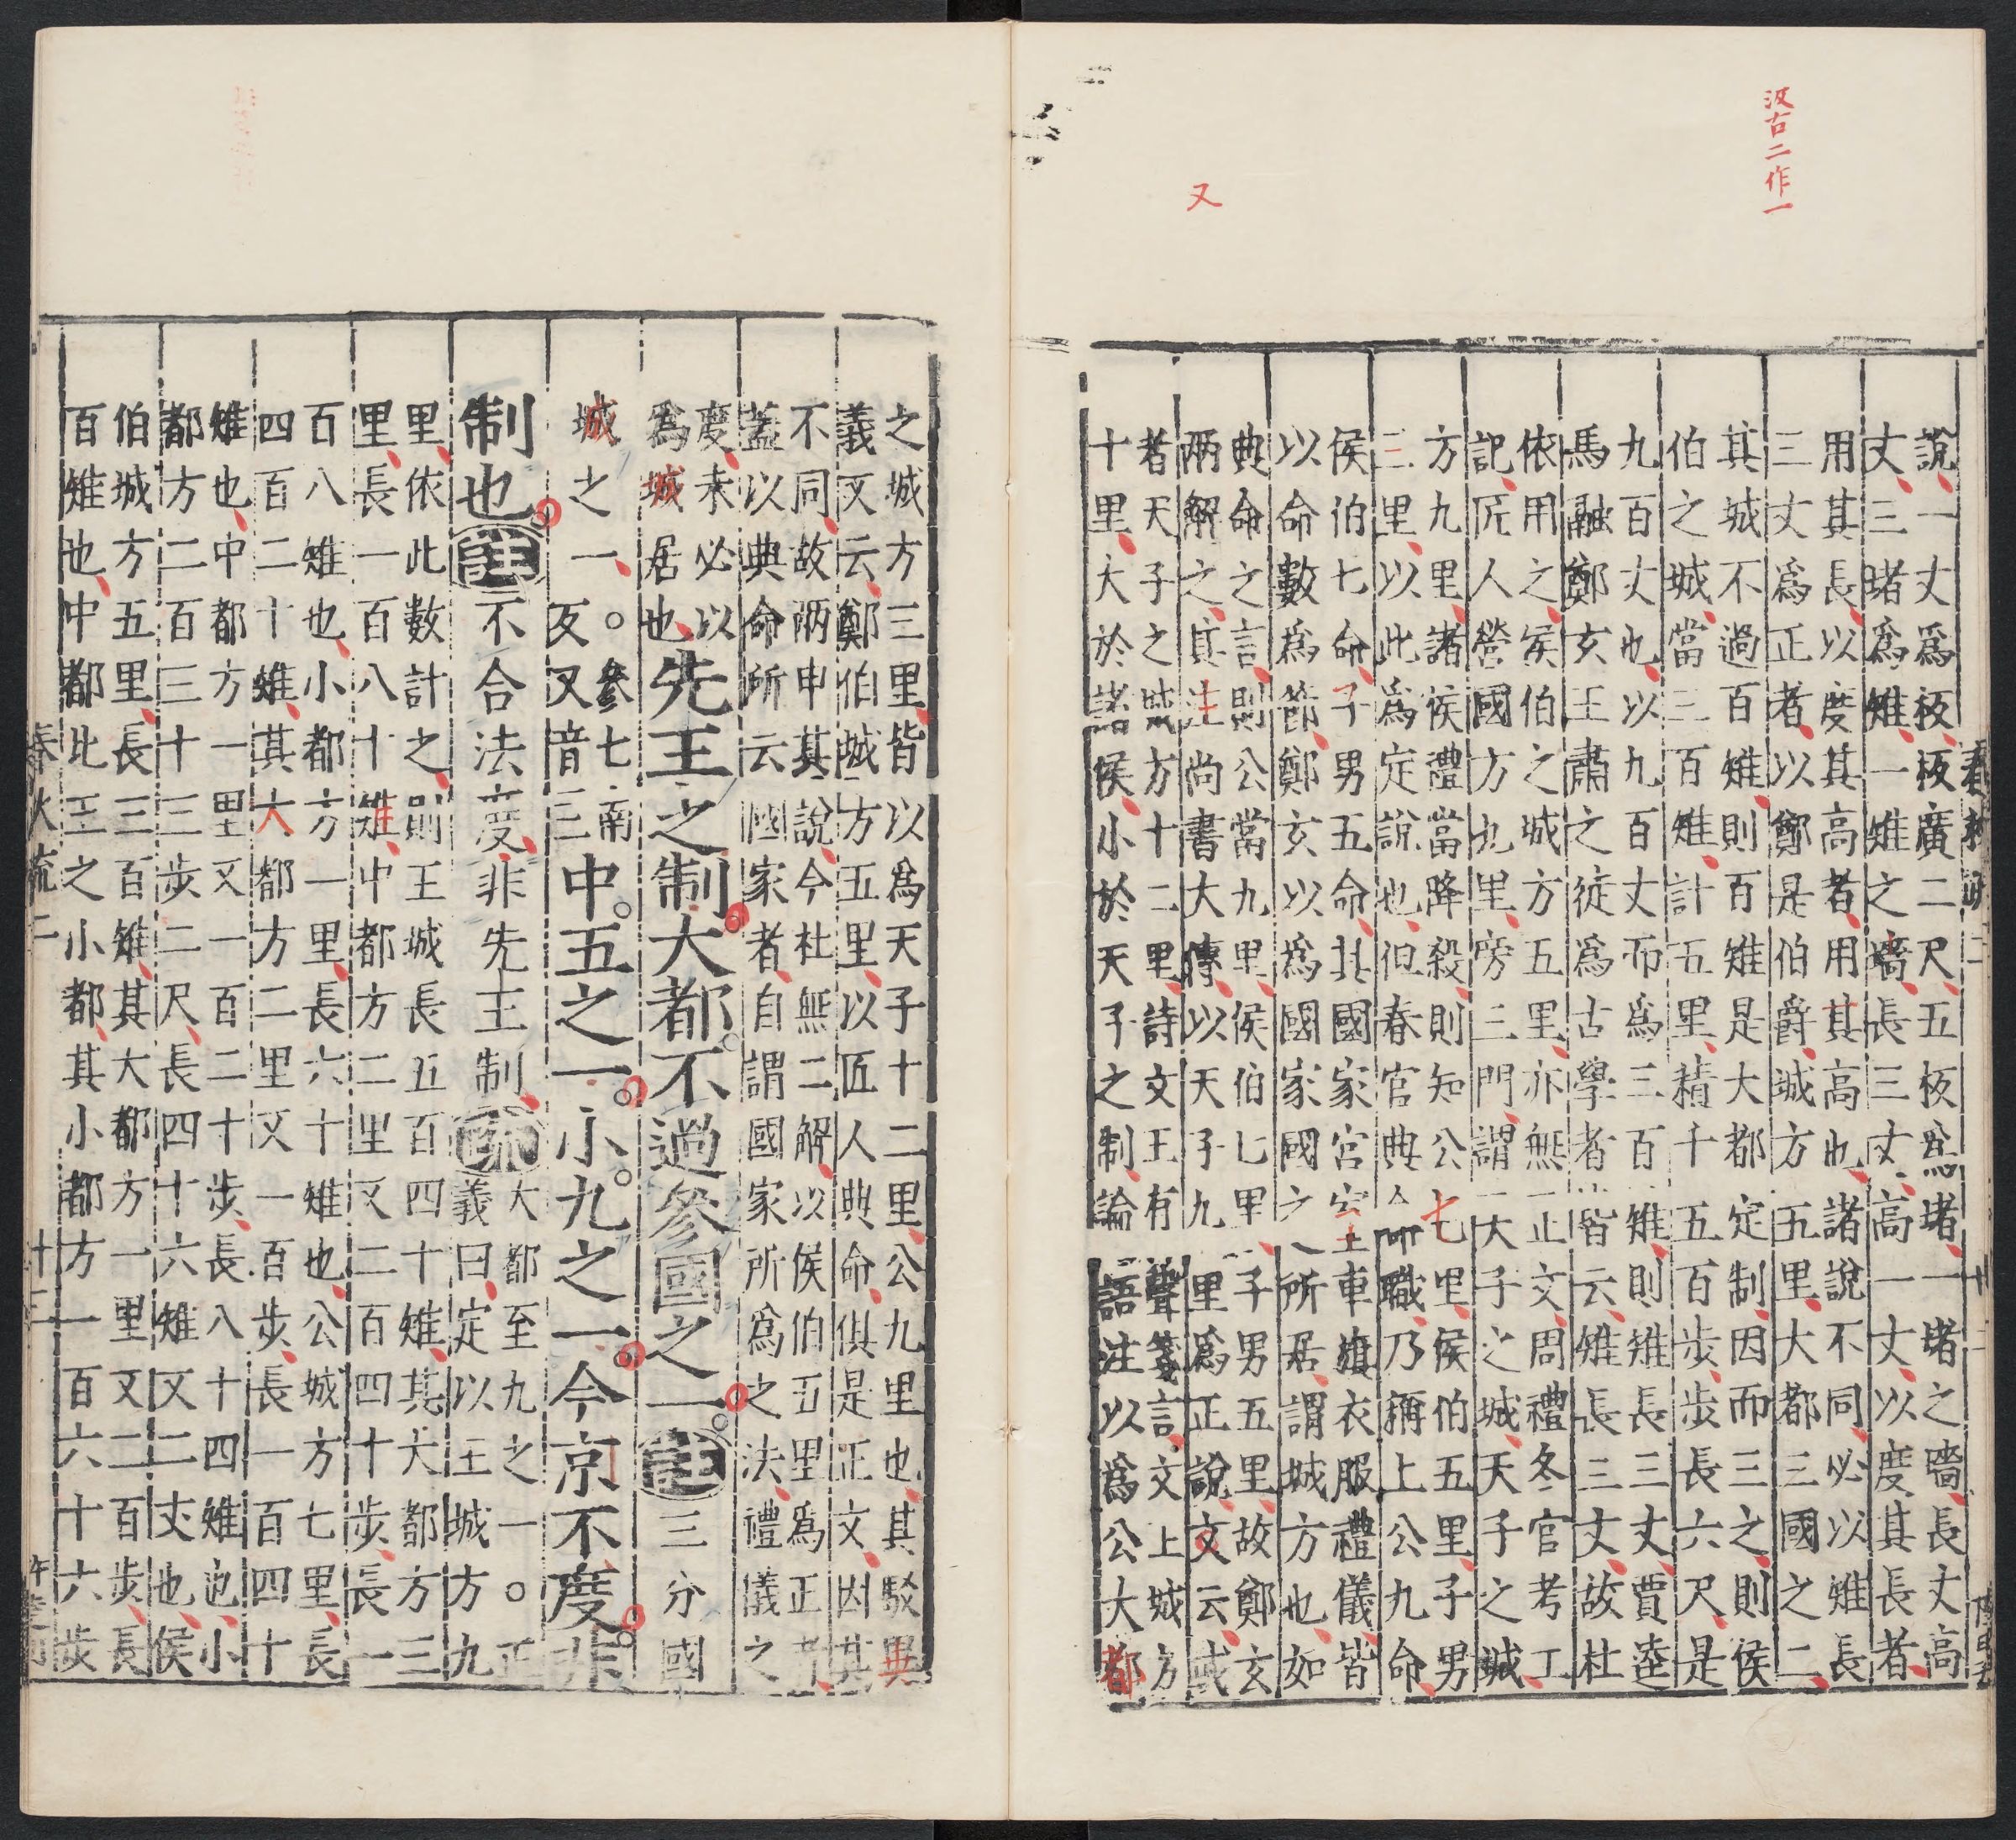 汲古二作一
又
說一丈爲板板廣二尺五板爲堵一堵之牆長丈高
丈三堵爲雉一雉之牆長三丈高一丈以度其長者
用其長以度其高者用其高也諸說不同必以雉長
三丈爲正者以鄭是伯爵城方五里大都三國之二
其城不過百雉則百雉是大都定制因而三之則侯
伯之城當三百雉計五里積千五百步步長六尺是
九百丈也以九百丈而爲三百雉則雉長三丈賈逵
馬融鄭玄王肅之徒爲古學者皆云雉長三丈故杜
依用之侯伯之城方五里亦無正文周禮冬官考工
記匠人營國方九里旁三門謂天子之城天子之城
方九里諸侯禮當降殺則知公七里侯伯五里子男
三里以此爲定說也但春官典命職乃稱上公九命
侯伯七命子男五命其國家宮室車旗衣服禮儀皆
以命數爲節鄭玄以爲國家國之所居謂城方也如
典命之言則公當九里侯伯七里子男五里故鄭玄
兩解之其注尚書大傳以天子九里爲正說文云或
者天子之城方十二里詩文王有聲箋言文上城方
十里大於諸侯小於天子之制論語注以爲公大都
之城方三里皆以爲天子十二里公九里也其駮異
義又云鄭伯城方五里以匠人典命俱是正文因其
不同故兩申其說今杜無二解以侯伯五里爲正者
蓋以典命所云國家者自謂國家所爲之法禮儀之
度未必以
爲城居也
先王之制大都不過參國之一註三分國
城之一 。參七南
反又音三
中五之一小九之一今京不度非
制也註不合法度非先王制疏
大都至九之一。正
義曰定以王城方九
里依此數計之則王城長五百四十雉其大都方三
里長一百八十雉中都方二里又二百四十步長一
百八雉也小都方一里長六十雉也公城方七里長
四百二十雉其大都方二里又一百步長一百四十
雉也中都方一里又一百二十步長八十四雉也小
都方二百三十三步二尺長四十六雉又二丈也侯
伯城方五里長三百雉其大都方一里又二百步長
百雉也中都比王之小都其小都方一百六十六步
春秋疏二
十三